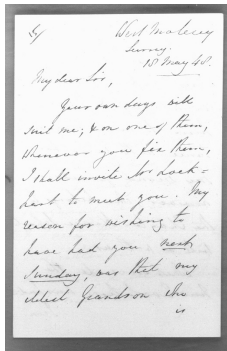 West Molesey
Surrey.
18 May 48.
My dear Sir,
Your own days will
suit me; & on one of them,
whenever you fix them,
I shall invite Mr Lock=
hart to meet you. My
reason for wishing to
have had you next
Sunday, was that my
eldest Grandson who
is